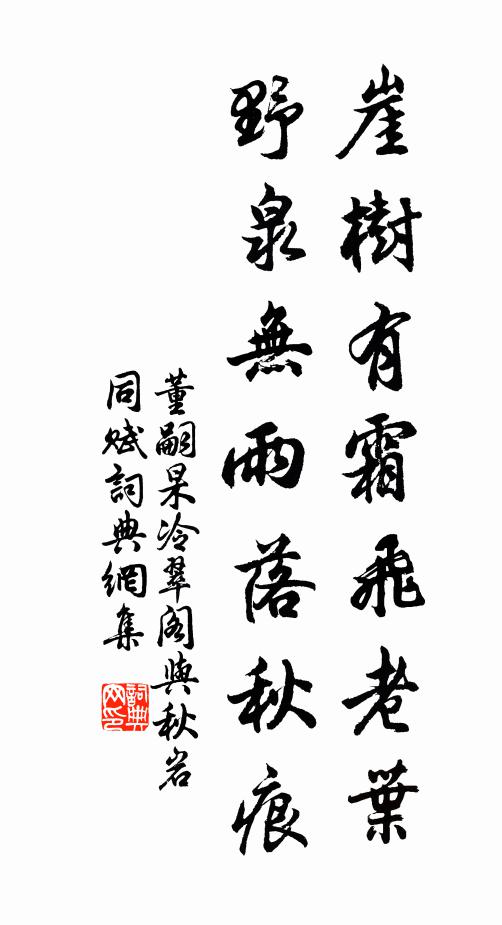 崖樹有霜飛老葉
野泉無雨落秋痕
董嗣杲冷翠閣與秋岩
同賦詞典網集
詞典
网印